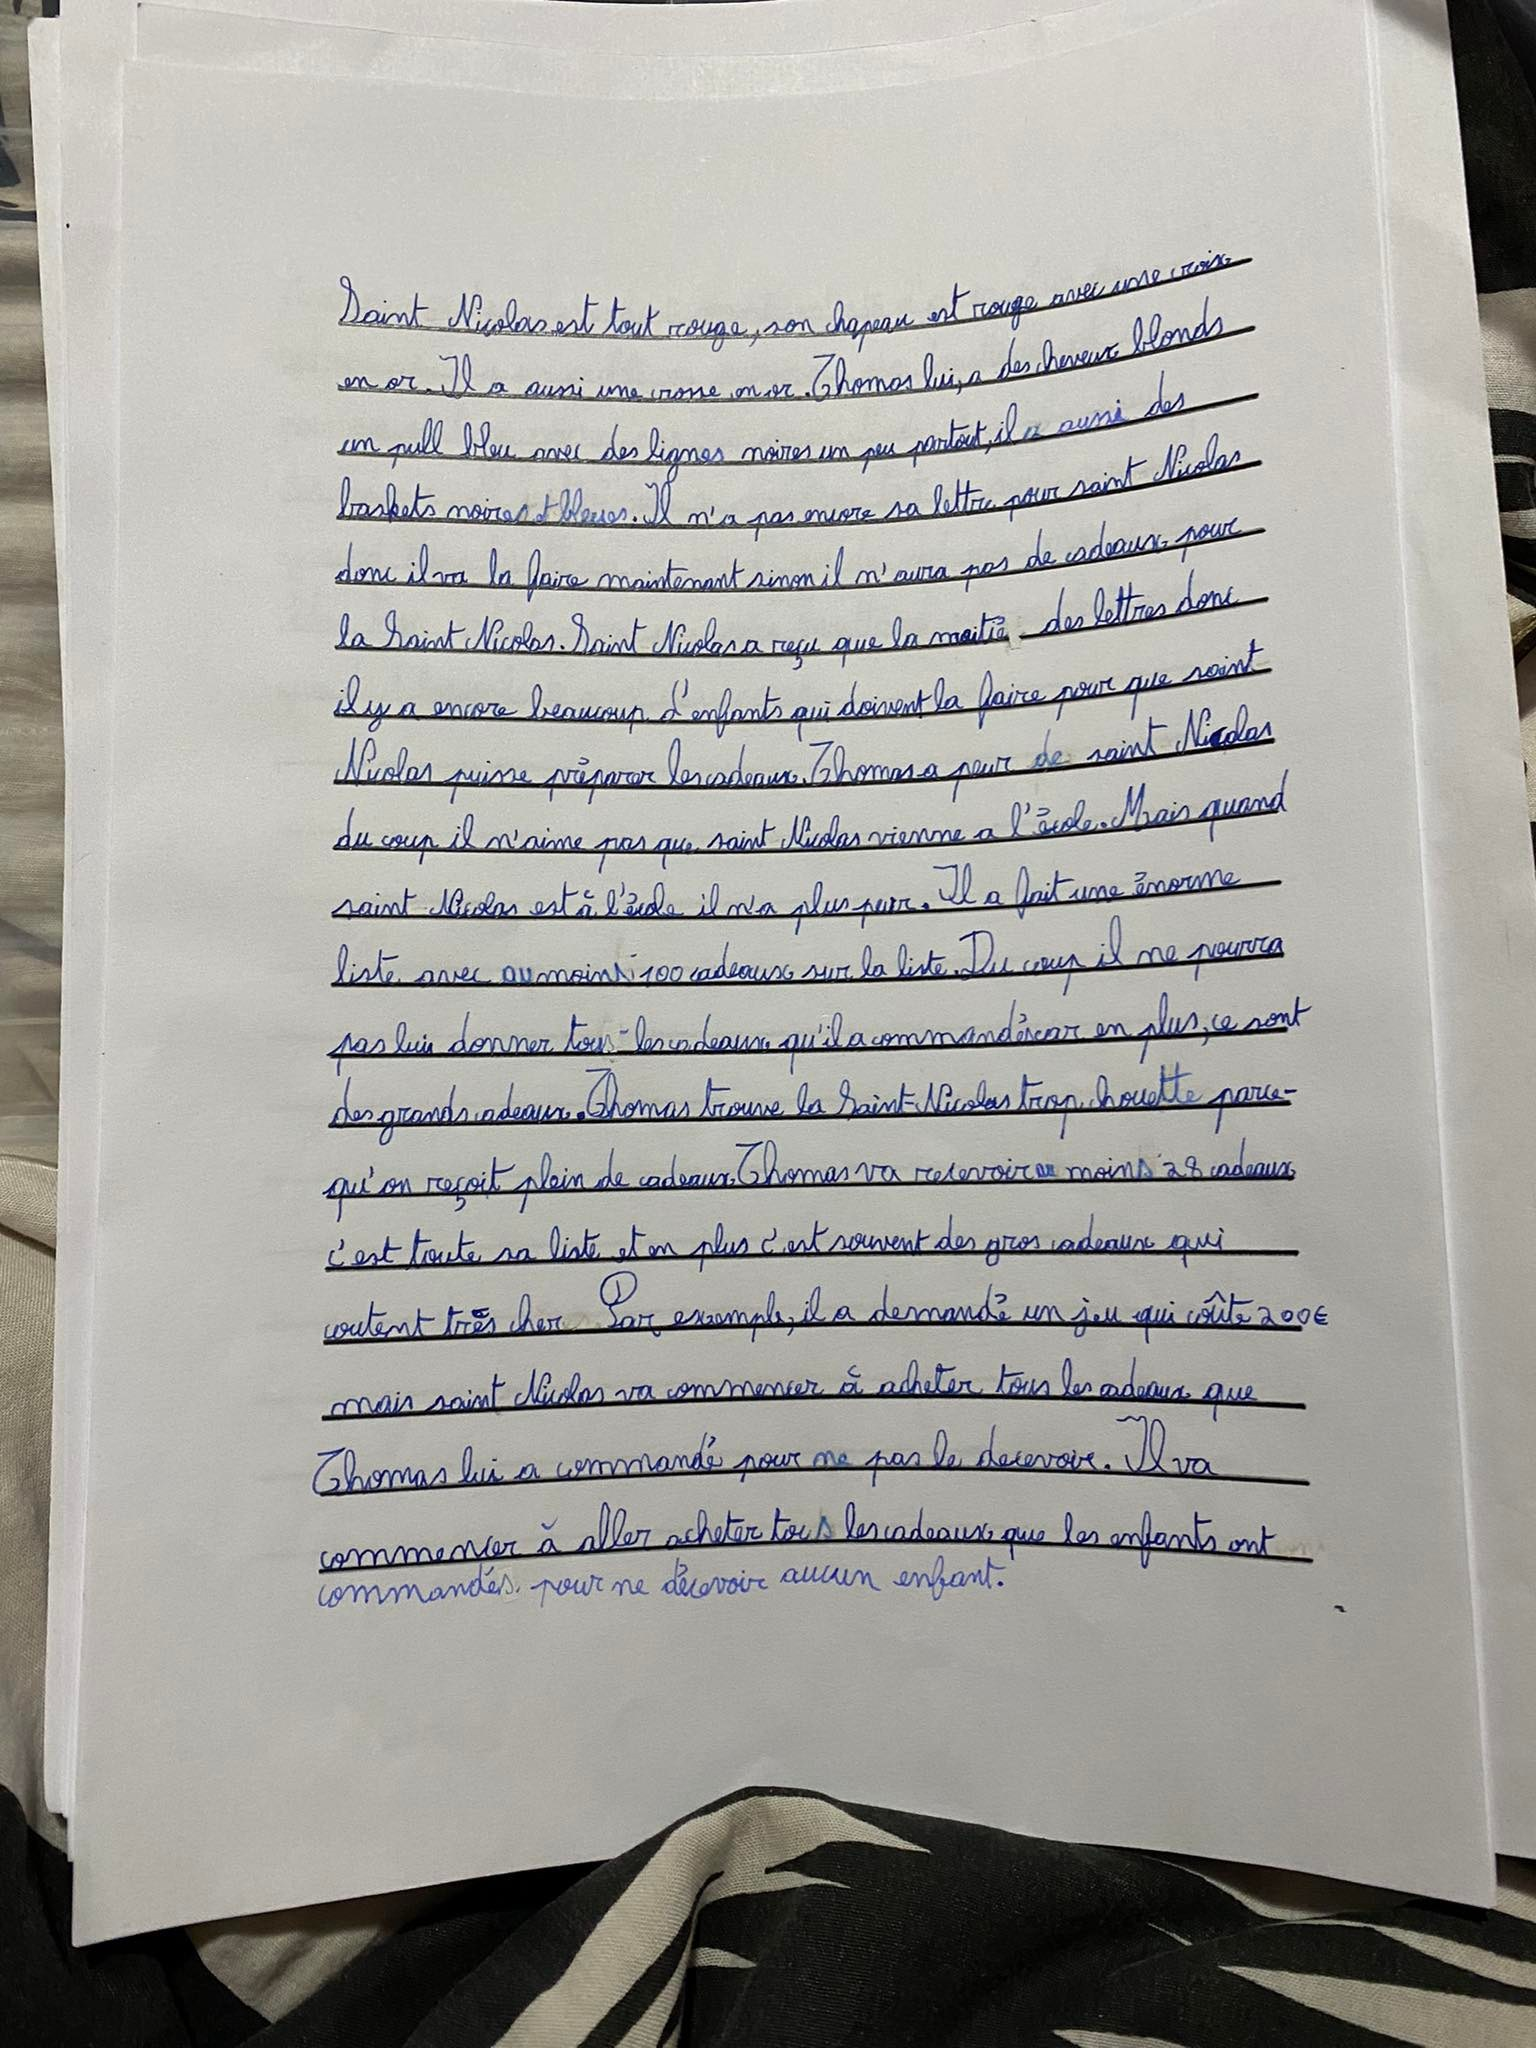 Saint Nicolas est tout rouge, son chapeau est rouge avec une croix
en or. Il a aussi une crosse en or. Thomas lui, a des cheveux blonds
un pull bleu avec des lignes noires un peu partout, il a aussi des
baskets noires et bleues. Il n'a pas encore sa lettre pour saint Nicolas
donc il va la faire maintenant sinon il n'aura pas de cadeaux pour
la Saint Nicolas. Saint Nicolas a reçu que la moitié des lettres donc
il y a encore beaucoup d'enfants qui doivent la faire pour que saint
Nicolas puisse préparer les cadeaux. Thomas a peur de saint Nicolas
du coup il n'aime pas que saint Nicolas vienne a l'école. Mais quand
saint Nicolas est à l'école il n'a plus peur. Il a fait une énorme
liste avec au moins 100 cadeaux sur la liste. Du coup il ne pourra
pas lui donner tous les cadeaux qu'il a commandés car en plus, ce sont
des grands cadeaux. Thomas trouve la Saint-Nicolas trop chouette parce-
qu'on reçoit plein de cadeaux. Thomas va recevoir au moins 28 cadeaux
c'est toute sa liste et en plus c'est souvent des gros cadeaux qui
coutent très cher. Par exemple, il a demandé un jeu qui coûte 200€
mais saint Nicolas va commencer à acheter tous les cadeaux que
Thomas lui a commandé pour ne pas le decevoir. Il va
commencer à aller acheter tous les cadeaux que les enfants ont
commandés pour ne décevoir aucun enfant.